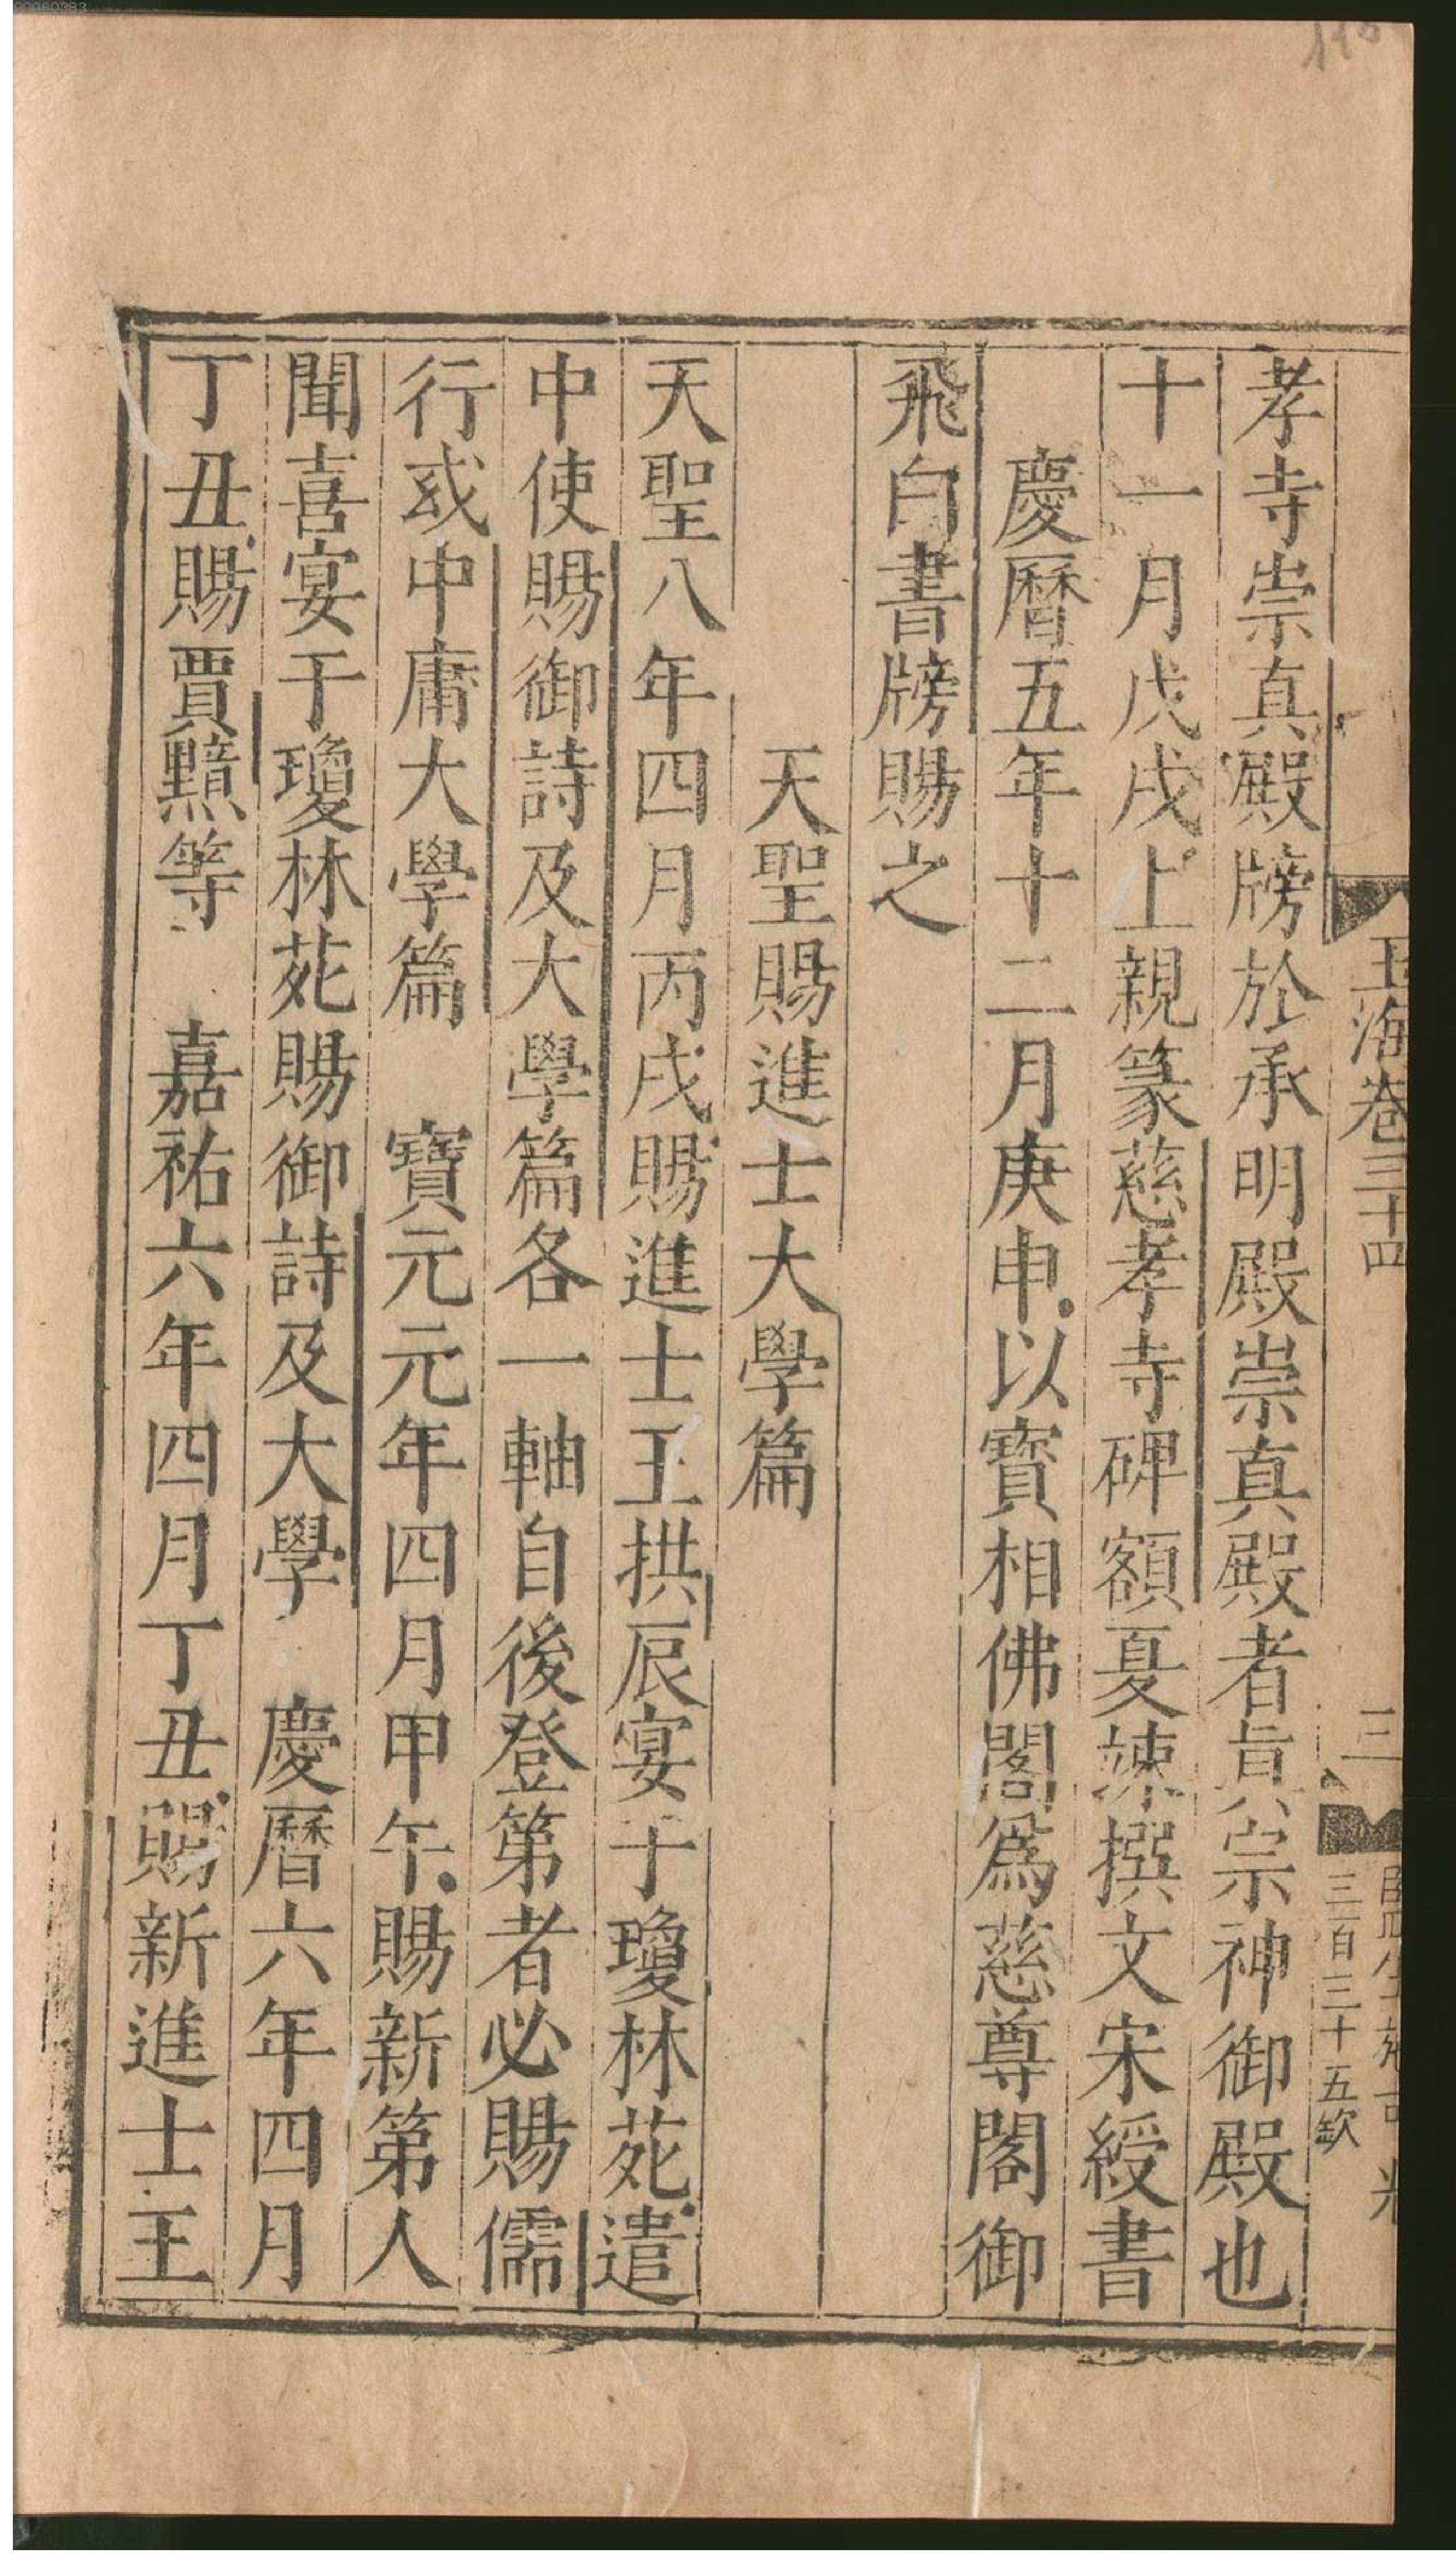 玉海卷三十四
三
三百三十五欽
孝寺崇真殿牓於承明殿崇真殿者真宗神御殿也
十一月戊戌上親篆慈孝寺碑額夏竦撰文宋綬書
慶曆五年十二月庚申以寶相佛閣爲慈尊閣御
飛白書牓賜之
天聖賜進士大學篇
天聖八年四月丙戌賜進士王拱辰宴于瓊林苑遣
中使賜御詩及大學篇各一軸自後登第者必賜儒
行或中庸大學篇　寶元元年四月甲午賜新第人
聞喜宴于瓊林苑賜御詩及大學　慶曆六年四月
丁丑賜賈黯等　嘉祐六年四月丁丑賜新進士王